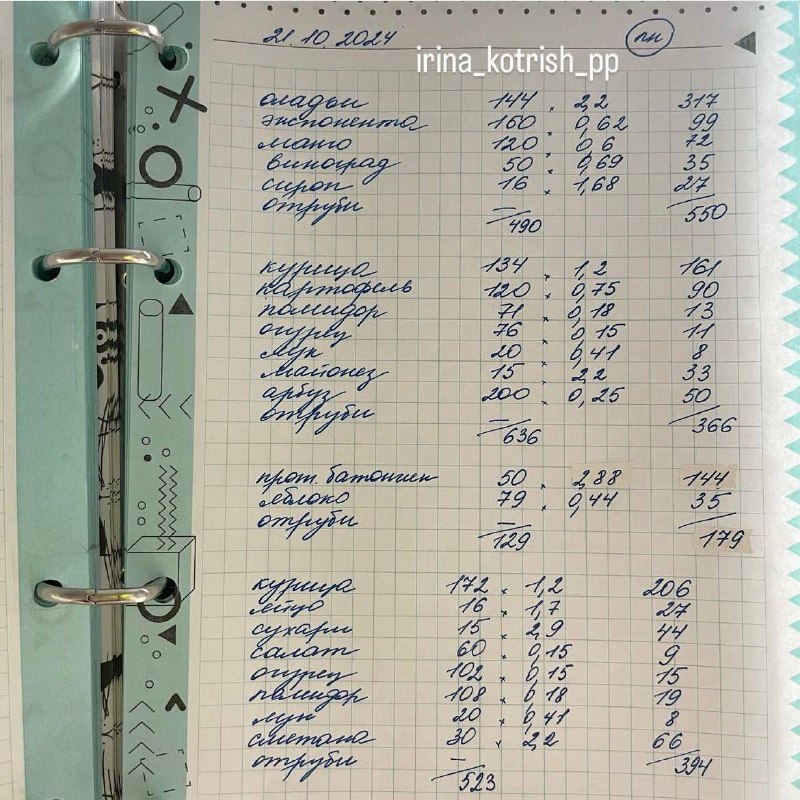 21.10.2024 пн
irina_kotrish_pp
оладьи 144 . 2,2 317
экспонента 160 . 0,62 99
манго 120 . 0,6 72
виноград 50 . 0,69 35
сироп 16 . 1,68 27
отруби – 490 550
курица 134 . 1,2 161
картофель 120 . 0,75 90
помидор 71 . 0,18 13
огурец 76 . 0,15 11
лук 20 . 0,41 8
майонез 15 . 2,2 33
арбуз 200 . 0,25 50
отруби – 636 366
прот. батончик 50 . 2,88 144
яблоко 79 . 0,44 35
отруби – 129 179
курица 172 . 1,2 206
яйцо 16 . 1,7 27
сухари 15 . 2,9 44
салат 60 . 0,15 9
огурец 102 . 0,15 15
помидор 108 . 0,18 19
лук 20 . 0,41 8
сметана 30 . 2,2 66
отруби – 523 394